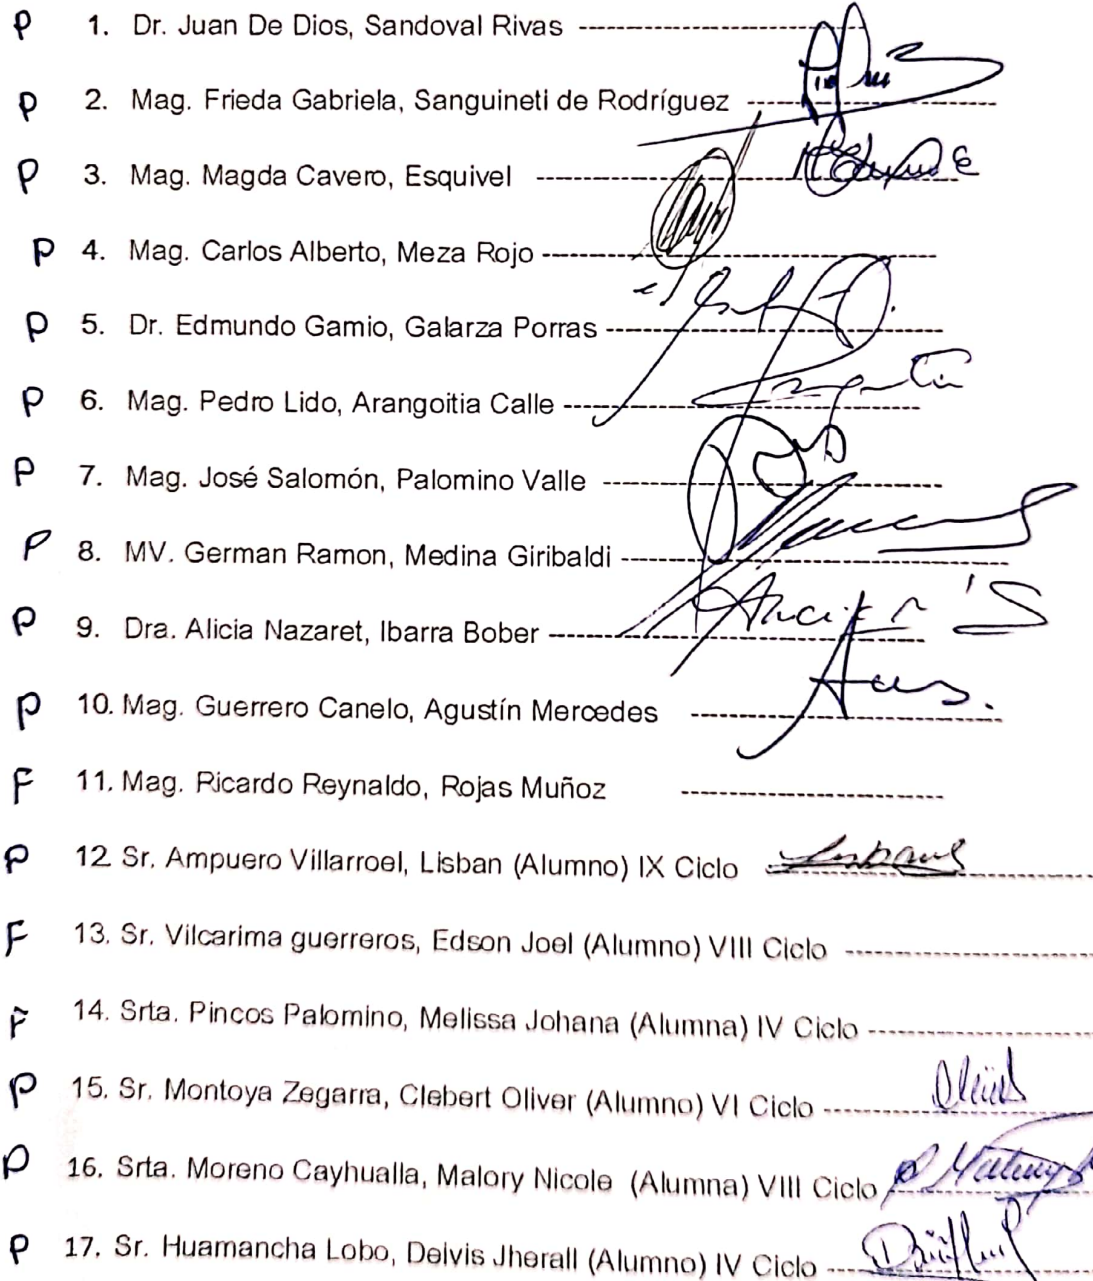 P 1. Dr. Juan De Dios, Sandoval Rivas
P 2. Mag. Frieda Gabriela, Sanguineti de Rodríguez
P 3. Mag. Magda Cavero, Esquivel
P 4. Mag. Carlos Alberto, Meza Rojo
P 5. Dr. Edmundo Gamio, Galarza Porras
P 6. Mag. Pedro Lido, Arangoitia Calle
P 7. Mag. José Salomón, Palomino Valle
P 8. MV. German Ramon, Medina Giribaldi
P 9. Dra. Alicia Nazaret, Ibarra Bober
P 10. Mag. Guerrero Canelo, Agustín Mercedes
F 11. Mag. Ricardo Reynaldo, Rojas Muñoz
P 12. Sr. Ampuero Villarroel, Lisban (Alumno) IX Ciclo
F 13. Sr. Vilcarima guerreros, Edson Joel (Alumno) VIII Ciclo
F 14. Srta. Pincos Palomino, Melissa Johana (Alumna) IV Ciclo
P 15. Sr. Montoya Zegarra, Clebert Oliver (Alumno) VI Ciclo
P 16. Srta. Moreno Cayhualla, Malory Nicole (Alumna) VIII Ciclo
P 17. Sr. Huamancha Lobo, Deivis Jherall (Alumno) IV Ciclo